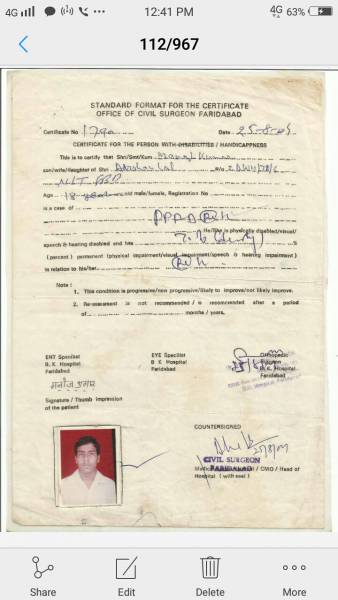 4G
12:41 PM
4G 63%
112/967
STANDARD FORMAT FOR THE CERTIFICATE
OFFICE OF CIVIL SURGEON FARIDABAD
Certificate No. Date 25-8-
CERTIFICATE FOR THE PERSON WITH DISABILITIES / HANDICAPPNESS
This is to certify that Shri/Smt/Kum Kumar
son/wife/daughter of Shri Lal
NIT FBD
Age 18 year old male/female, Registration No
is a case of PPRP
He/She is physically disabled/visual
speech & hearing disabled and has %
(percent) permanent (physical impairment/visual impairment/speech & hearing impairment)
in relation to his/her
Note :
1. This condition is progressive/non progressive/likely to improve/not likely improve.
2. Re-assessment is not recommended / is recommended after a period
of months / years.
ENT Specilist EYE Specilist Orthopedic
B. K. Hospital B K Hospital Surgeon
Faridabad Faridabad B.K. Hospital
Faridabad
मनोज कुमार
Signature / Thumb impression
of the patient
COUNTERSIGNED
CIVIL SURGEON
FARIDABAD
/ CMO / Head of
Hospital ( with seal )
Share Edit Delete More